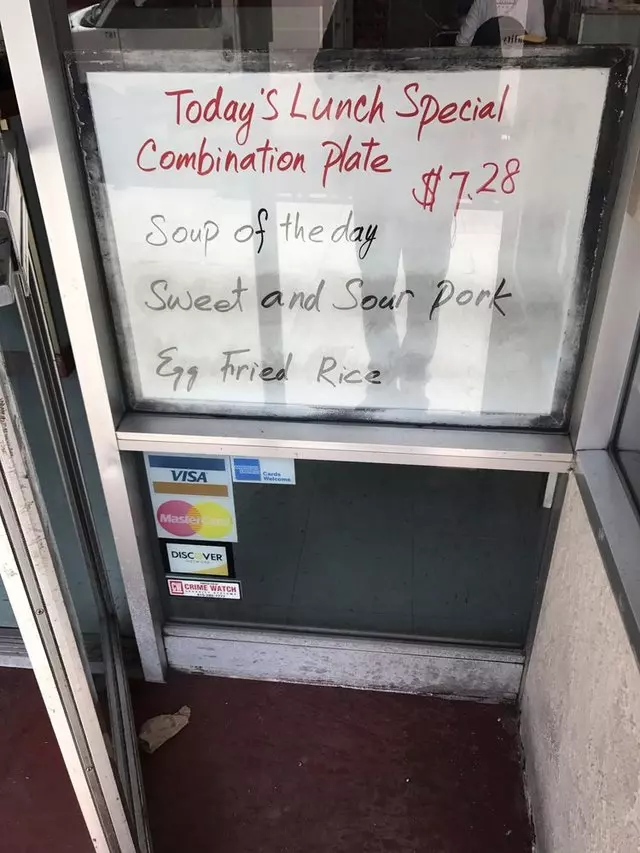 Today's Lunch Special
Combination Plate $7.28
Soup of the day
Sweet and Sour Pork
Egg Fried Rice
VISA
AMERICAN EXPRESS
Cards Welcome
MasterCard
DISCOVER
NETWORK
CRIME WATCH